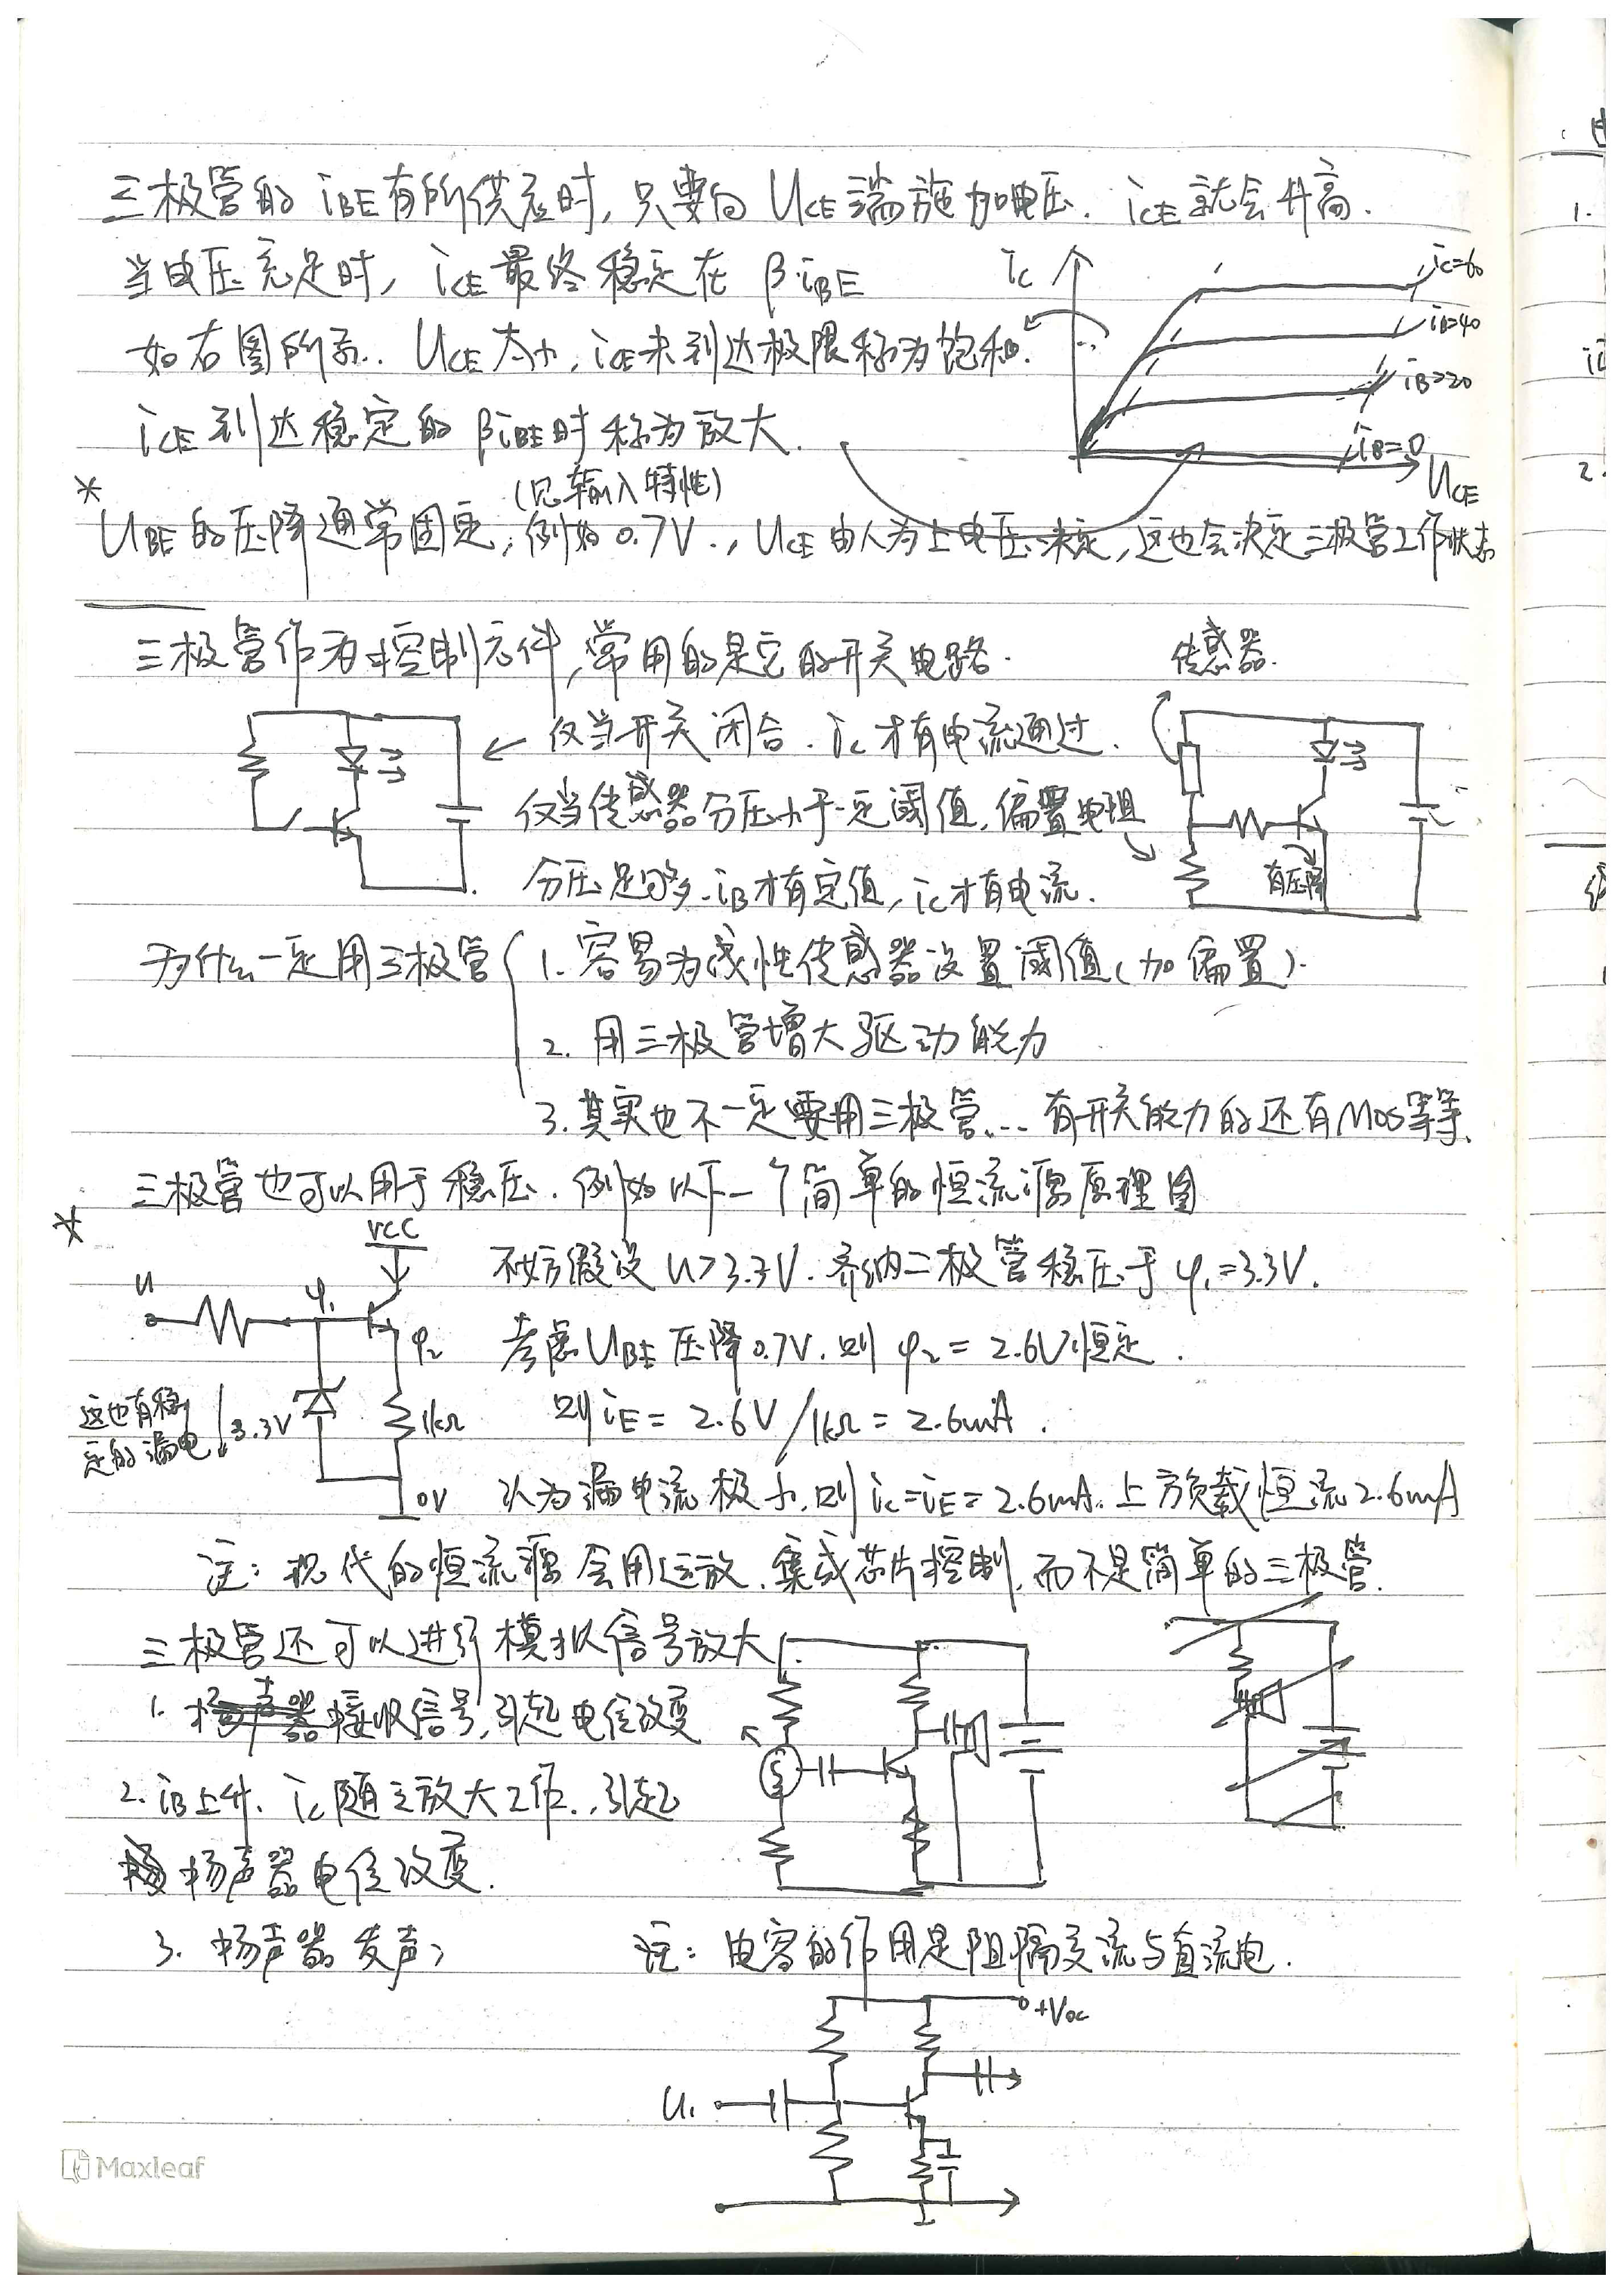 三极管的 iBE有所供应时,只要向 UCE端施加电压. iCE就会升高.
当电压充足时, iCE最终稳定在 βiBE
如右图所示. UCE太小, iCE未到达极限称为饱和.
iCE到达稳定的 βiBE时称为放大.
iC
iC=60
iB=40
iB=20
iB=0
UCE
(见输入特性)
* UBE的压降通常固定,例如0.7V., UCE由人为上电压决定,这也会决定三极管工作状态
三极管作为控制元件,常用的是它的开关电路.
传感器.
← 仅当开关闭合. ic才有电流通过.
仅当传感器分压小于一定阈值,偏置电阻
分压足够多. iB才有定值, ic才有电流.
有压降
为什么一定用三极管 1. 容易为线性传感器设置阈值(加偏置).
2. 用三极管增大驱动能力
3. 其实也不一定要用三极管... 有开关能力的还有MOS等等.
三极管也可以用于稳压. 例如以下一个简单的恒流源原理图
*
VCC
u
φ1
φ2
不妨假设 u>3.3V. 齐纳二极管稳压于 φ1=3.3V.
考虑UBE压降0.7V. 则 φ2=2.6V恒定.
这也有稳
定的漏电
3.3V
1kΩ
0V
则 iE=2.6V/1kΩ=2.6mA.
认为漏电流极小,则 ic=iE=2.6mA. 上方负载恒流2.6mA
注: 现代的恒流源会用运放、集成芯片控制,而不是简单的三极管.
三极管还可以进行模拟信号放大
1. 接收信号,引起电位改变
2. iB上升、ic随之放大工作.,引起
扬声器电位改变.
3. 扬声器发声;
注: 电容的作用是阻隔交流与直流电.
+Vcc
U1
Maxleaf